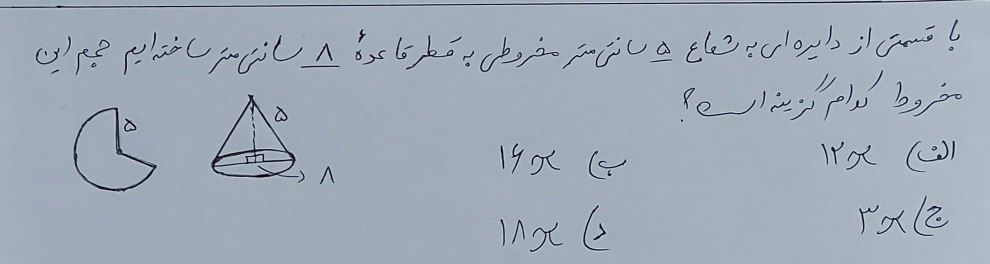 با قسمتی از دایره ای به شعاع ۵ سانتی متر مخروطی به قطر قاعدهٔ ۸ سانتی متر ساخته ایم حجم این
مخروط کدام گزینه است؟
الف) ۱۲π ب) ۱۶π
ج) ۳π د) ۱۸π
۵ ۵
۸